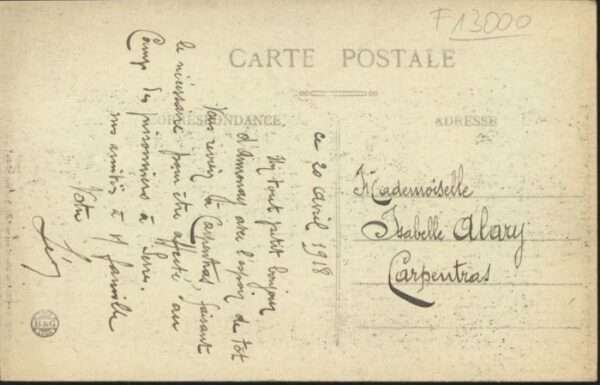 F 13000
CARTE POSTALE
CORRESPONDANCE
ADRESSE
ce 20 avril 1918
Un tout petit bonjour
d'Annonay avec l'espoir de tôt
vous revoir à Carpentras faisant
le nécessaire pour être affecté au
Camp des prisonniers à Serres.
mes amitiés à M famille
Votre
Mademoiselle
Isabelle Alary
Carpentras
B&G